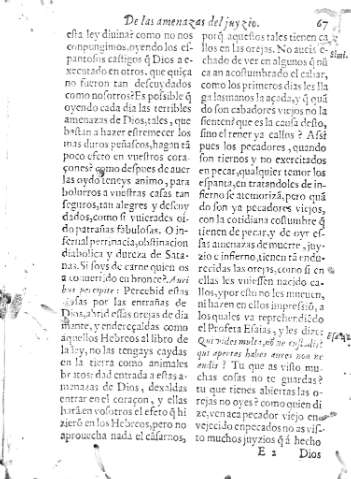 De las amenazas del juyzio. 67
esta ley diuina? como no nos
conpungimos, oyendo los es-
pantosos castigos q̃ Dios a e-
xecutado en otros, que quiça
no fueron tan descuydados
como nosotros? Es posible q̃
oyendo cada dia las terribles
amenazas de Dios, tales, que
bastan a hazer estremecer los
mas duros peñascos, hagan tã
poco efeto en vuestros cora-
çones? como despues de auer
las oydo teneys animo, para
bolueros a vuestras casas tan
seguros, tan alegres y descuy
dados, como si vuierades oi-
do patrañas fabulosas. O in-
fernal pertinacia, obstinacion
diabolica y dureza de Sata-
nas. Si soys de carne quien os
a conuertido en bronce? Auri
bus percipite: Percebid estas
cosas por las entrañas de
Dios, abrid essas orejas de dia
mante, y endereçaldas como
aquellos Hebreos al libro de
la ley, no las tengays caydas
en la tierra como animales
brutos: dad entrada a estas a-
menazas de Dios, dexaldas
entrar en el coraçon, y ellas
harã en vosotros el efeto q̃ hi
zierõ en los Hebreos, pero no
aprouecha nada el cãsarnos,
porq̃ aquestos tales tienen ca
llos en las orejas. No aueis e-
chado de ver en algunos q̃ nũ
ca an acostumbrado el cabar,
como los primeros dias les lla
ga las manos la açada, y q̃ quã
do son cabadores viejos no la
sienten? que es la causa desto,
sino el tener ya callos? Assi
pues los pecadores, quando
son tiernos y no exercitados
en pecar, qualquier temor los
espanta, en tratandoles de in-
fierno se atemoriza, pero quã
do son ya pecadores viejos,
con la cotidiana costumbre q̃
tienen de pecar, y de oyr es-
sas amenazas de muerte, juy-
zio e infierno, tienen tã endu-
recidas las orejas, como si en
ellas les vuiessen nacido ca-
llos, y por esto no les mueuen,
ni haren en ellos impresiõ, a
los quales va reprehendiẽdo
el Profeta Esaias, y les dize:
Qui vides multa, nõ ne custodies?
qui apertas habes aures non ne
audis? Tu que as visto mu-
chas cosas no te guardas?
tu que tienes abiertas las o-
rejas no oyes? como quien di
ze, ven aca pecador viejo en-
vejecido en pecados no as vis-
to muchos juyzios q̃ a hecho
Simi.
E 2 Dios